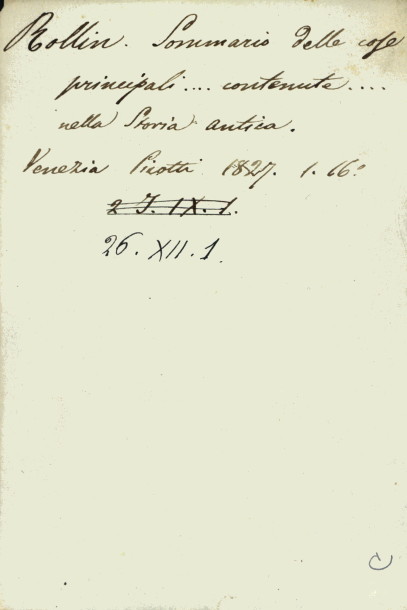 Rollin. Sommario delle cose
principali .... contenute ....
nella Storia antica.
Venezia Picotti 1827. 1. 16º
2 J. IX. 1.
26. XII. 1.